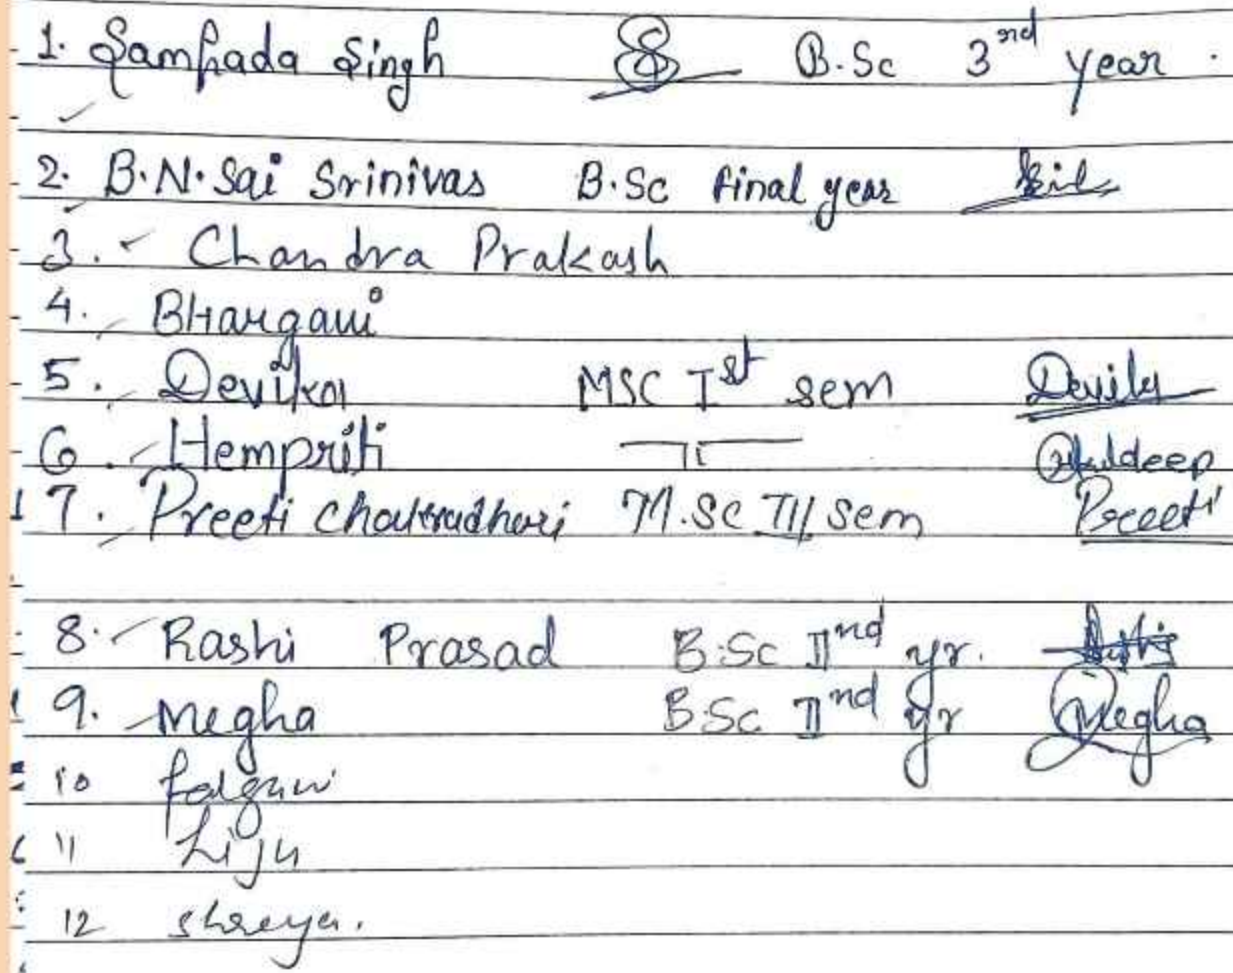 1. Sampada Singh B.Sc 3rd year.
2. B.N. Sai Srinivas B.Sc final year
3. Chandra Prakash
4. BHargavi
5. Devika MSC Ist sem Devika
6. Hempriti —11— Kuldeep
7. Preeti chakradhari M.Sc III sem Preeti
8. Rashi Prasad B.Sc IInd yr.
9. Megha B.Sc IInd yr Megha
10 falguni
11 Liju
12 shreya.